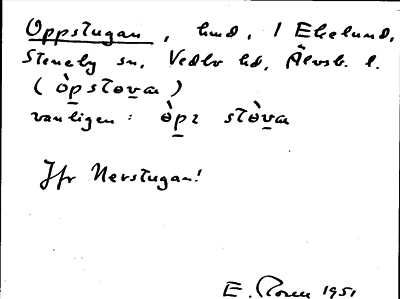 Oppstugan, hmd, 1 Ekelund,
Steneby sn, Vedbo hd, Älvsb. l.
(òpstova)
vanligen: òpz stòva
Jfr Nerstugan!
E. Rosen 1951